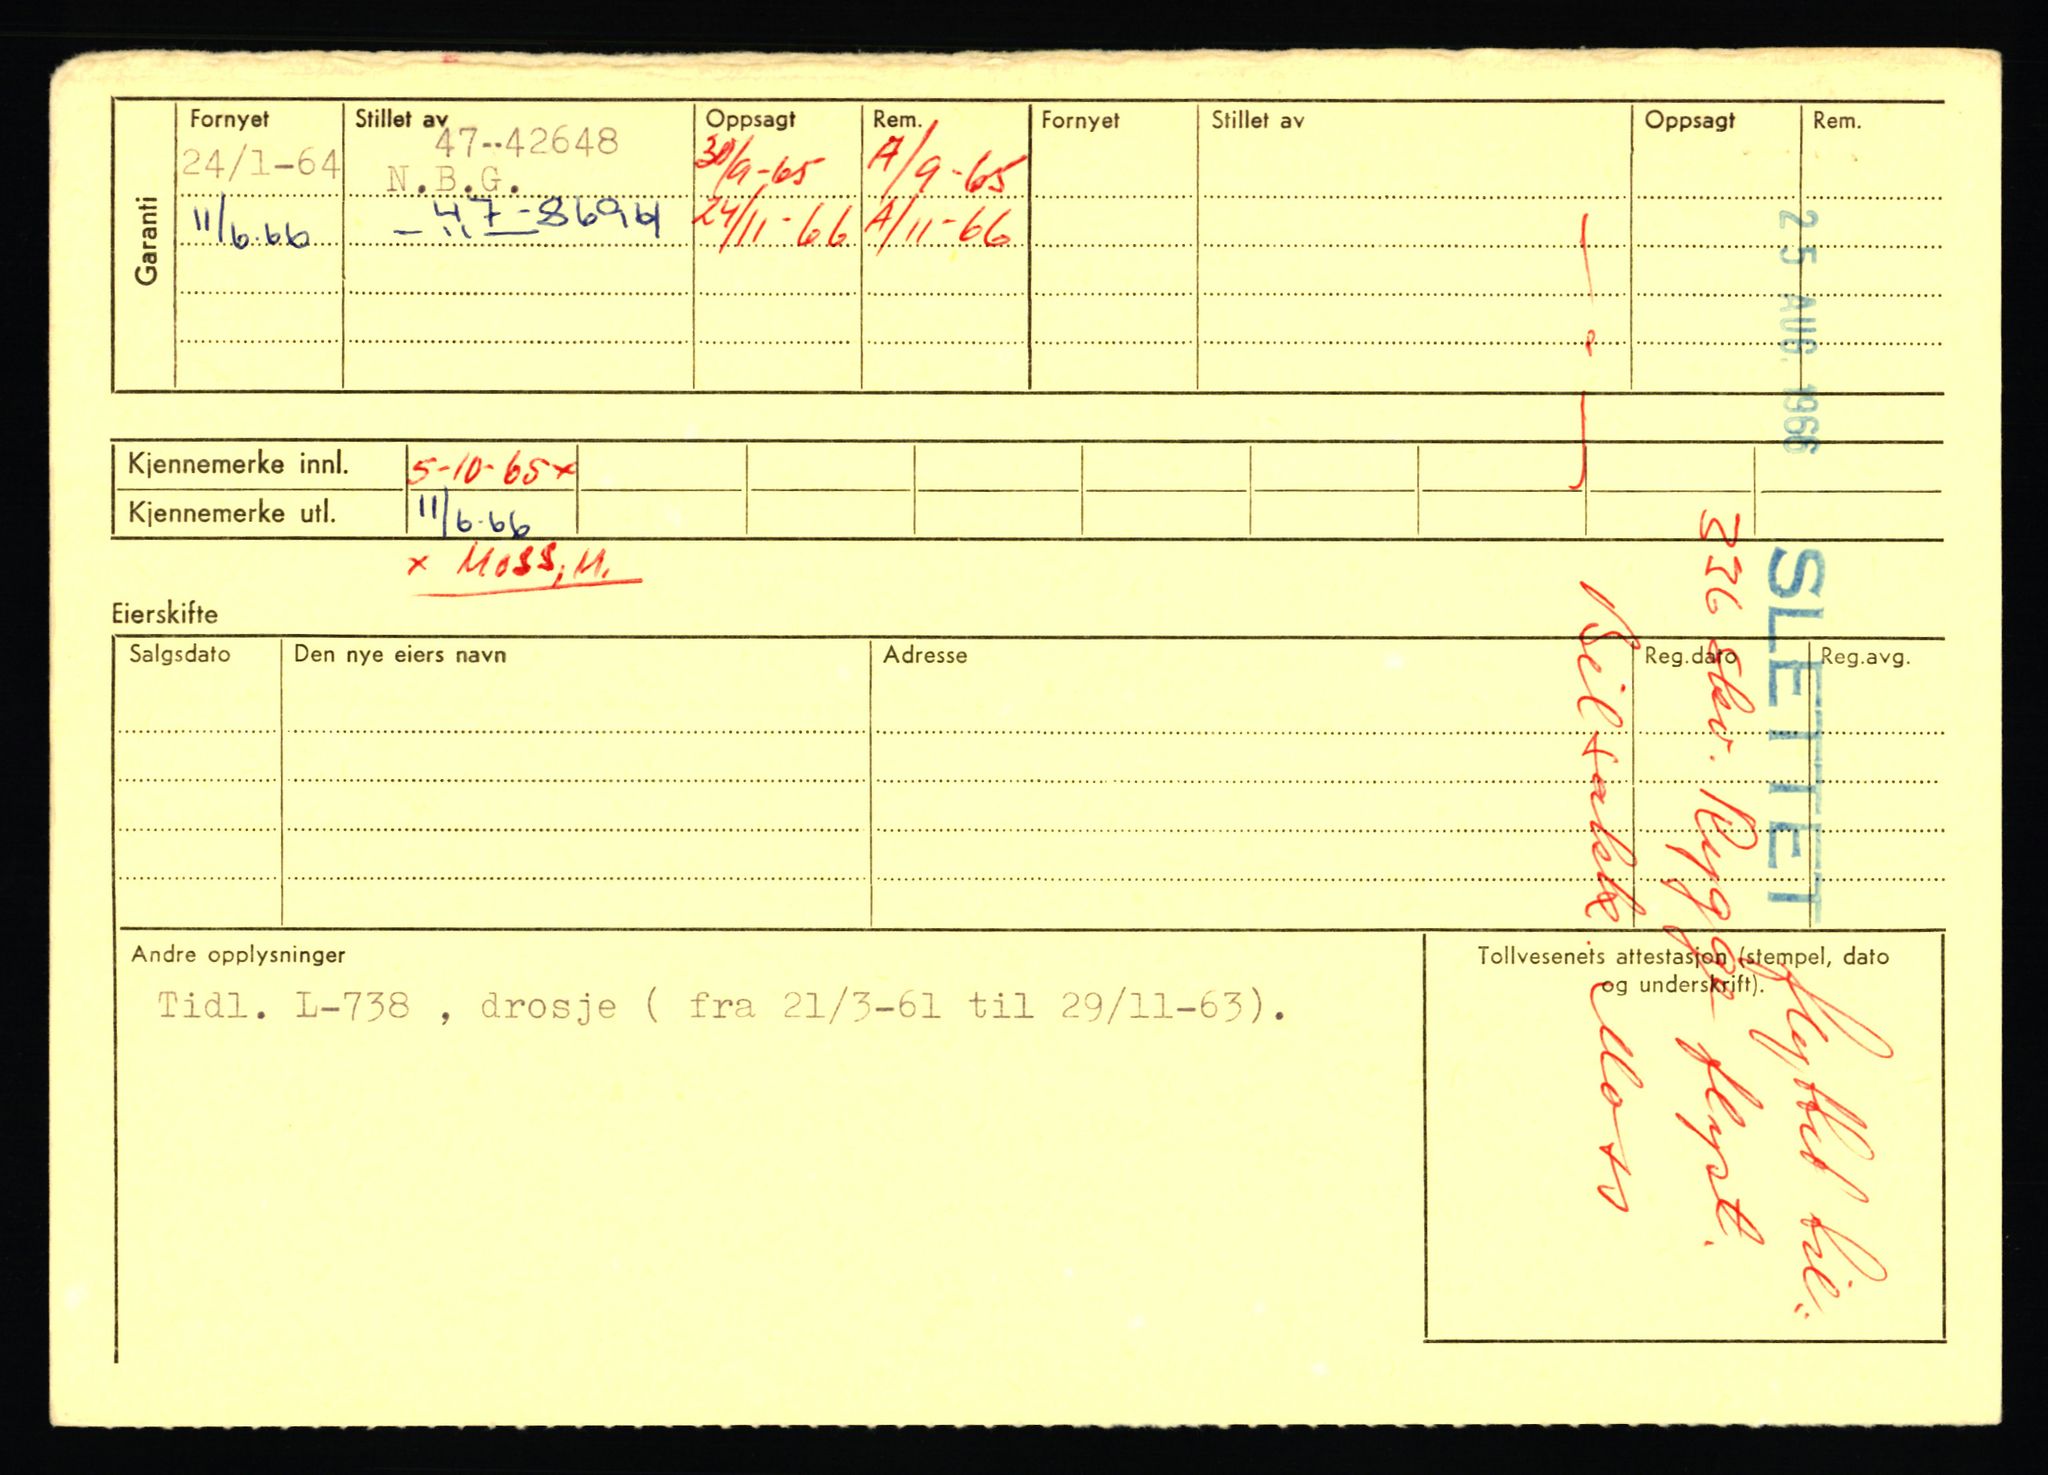 Garanti
Fornyet Stillet av Oppsagt Rem. Fornyet Stillet av Oppsagt Rem.
47--42648
24/1-64 N.B.G. 30/9-65 A/9-65
11/6.66 47-8694 24/11-66 A/11-66
— " —
Kjennemerke innl. 5-10-65x
Kjennemerke utl. 11/6.66
x Moss, M.
Eierskifte
Salgsdato Den nye eiers navn Adresse Reg.dato Reg.avg.
Andre opplysninger
Tidl. L-738 , drosje ( fra 21/3-61 til 29/11-63).
Tollvesenets attestasjon (stempel, dato
og underskrift).
25 AUG. 1966
SLETTET
flyttet til:
336 skv. Rygge flyst.
Biltilsakk. Moss